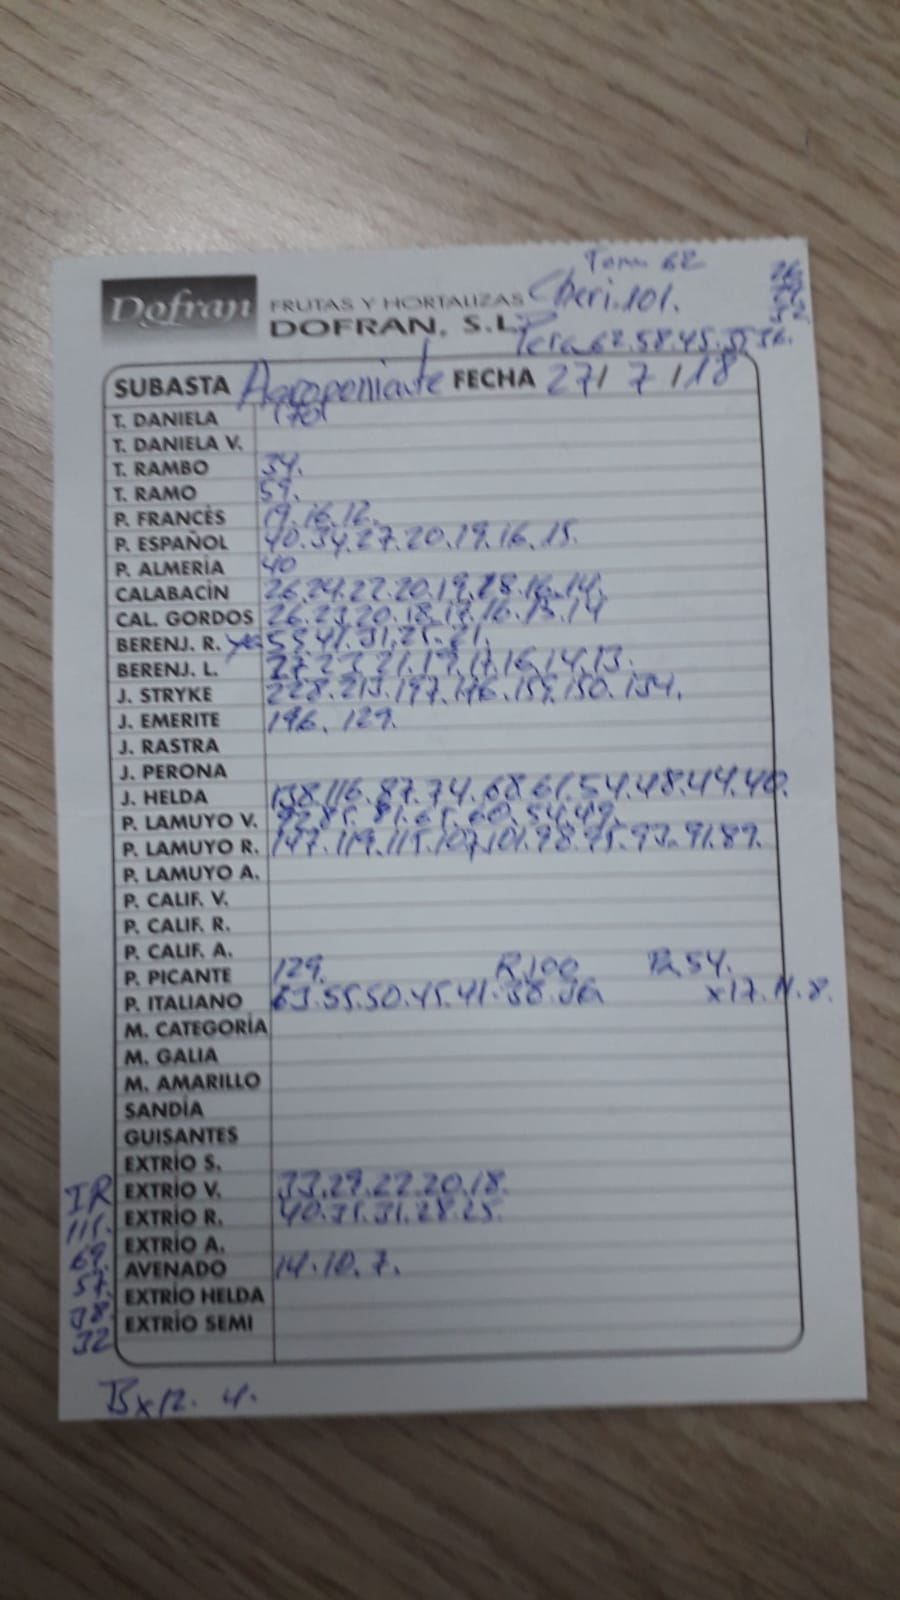 Tom 62
Dofran FRUTAS Y HORTALIZAS Cheri.101.
DOFRAN, S.L.
Pera 62.58.45.37.36.
SUBASTA Agroponiente FECHA 27/ 7 /18
T. DANIELA
T. DANIELA V.
T. RAMBO 34.
T. RAMO 59.
P. FRANCÉS 19.16.12.
P. ESPAÑOL 40.34.27.20.19.16.15.
P. ALMERÍA 40
CALABACÍN 26.24.22.20.19.18.16.14.
CAL. GORDOS 26.23.20.18.17.16.15.14
BERENJ. R. 55.41.31.25.21.
BERENJ. L. 27.23.21.19.17.16.14.13.
J. STRYKE 228.213.197.176.159.150.134.
J. EMERITE 196. 129.
J. RASTRA
J. PERONA
J. HELDA 138.116.87.74.68.61.54.48.44.40.
P. LAMUYO V. 92.85.81.65.60.54.49.
P. LAMUYO R. 147.119.115.107.101.98.95.93.91.89.
P. LAMUYO A.
P. CALIF. V.
P. CALIF. R.
P. CALIF. A.
P. PICANTE 129. R.100 54.
P. ITALIANO 63.55.50.45.41.38.36 x17.11.8.
M. CATEGORÍA
M. GALIA
M. AMARILLO
SANDÍA
GUISANTES
EXTRÍO S.
IR EXTRÍO V. 33.29.22.20.18.
111. EXTRÍO R. 40.35.31.28.25.
69. EXTRÍO A.
57. AVENADO 14.10.7.
38. EXTRÍO HELDA
32 EXTRÍO SEMI
Bx12. 4.